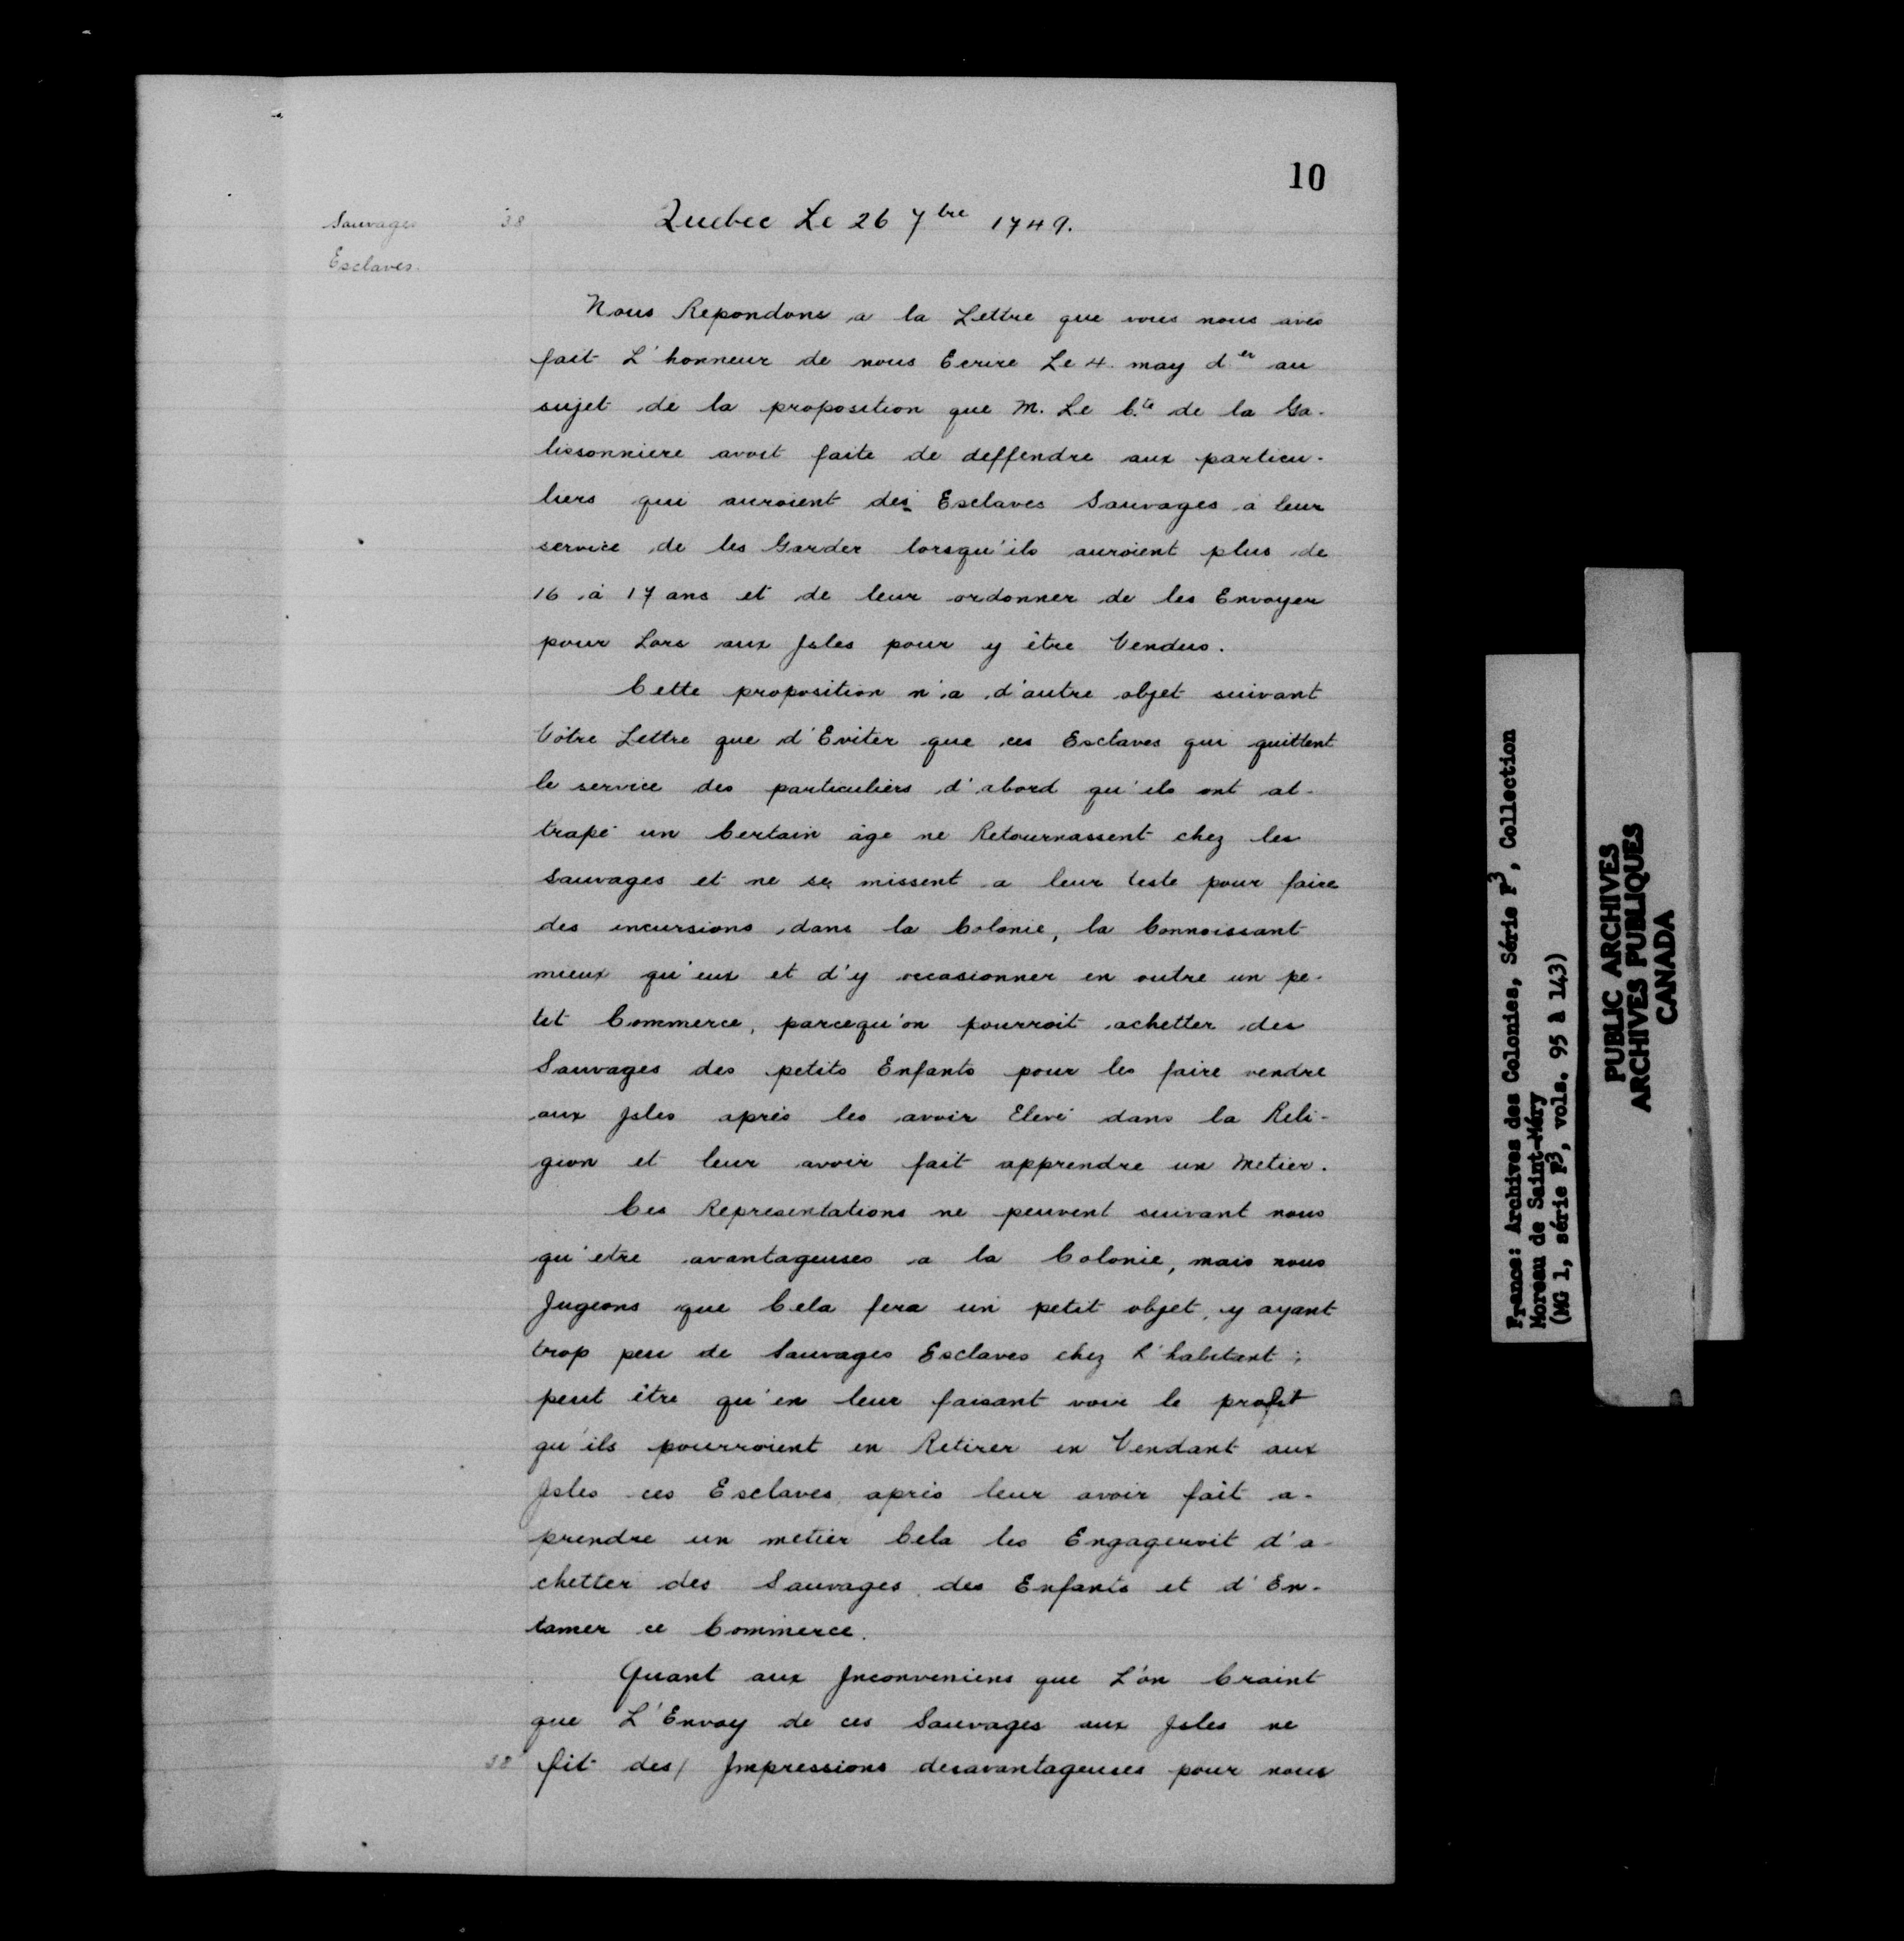 10
Sauvages
Esclaves.
38
Quebec Le 26 7bre 1749.
Nous Repondons a la Lettre que vous nous aves
fait L'honneur de nous Ecrire Le 4. may d.er au
sujet de la proposition que M. Le C.te de la Ga-
lissonniere avoit faite de deffendre aux particu-
liers qui auroient des Esclaves Sauvages à leur
service de les Garder lorsqu'ils auroient plus de
16 à 17 ans et de leur ordonner de les Envoyer
pour Lors aux Isles pour y être Vendus.
Cette proposition n'a d'autre objet suivant
Vôtre Lettre que d'Eviter que ces Esclaves qui quittent
le service des particuliers d'abord qu'ils ont at-
trapé un Certain âge ne Retournassent chez les
Sauvages et ne se missent a leur teste pour faire
des incursions dans la Colonie, la Connoissant
mieux qu'eux et d'y occasionner en outre un pe-
tit Commerce, parcequ'on pourroit achetter des
Sauvages des petits Enfants pour les faire vendre
aux Isles après les avoir Elevé dans la Reli-
gion et leur avoir fait apprendre un Metier.
Ces Representations ne peuvent suivant nous
qu'etre avantageuses a la Colonie, mais nous
Jugeons que Cela fera un petit objet, y ayant
trop peu de Sauvages Esclaves chez L'habitant;
peut être qu'en leur faisant voir le profit
qu'ils pourroient en Retirer en Vendant aux
Isles ces Esclaves, après leur avoir fait a-
prendre un metier Cela les Engageroit d'a-
chetter des Sauvages des Enfants et d'En-
tamer ce Commerce.
Quant aux Inconveniens que L'on Craint
que L'Envoy de ces Sauvages aux Isles ne
38 fit des/ Impressions desavantageuses pour nous
France: Archives des Colonies, Série F3, Collection
Moreau de Saint-Méry
(MG 1, série F3, vols. 95 à 143)
PUBLIC ARCHIVES
ARCHIVES PUBLIQUES
CANADA